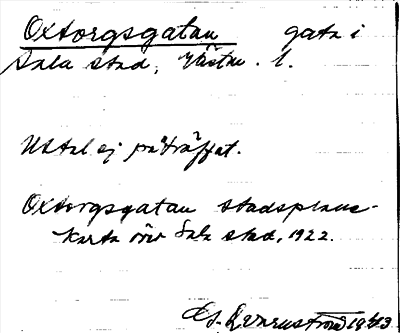 Oxtorgsgatan gata i
Sala stad, Västm. l.
Uttal ej påträffat.
Oxtorgsgatan stadsplane-
karta över Sala stad, 1922.